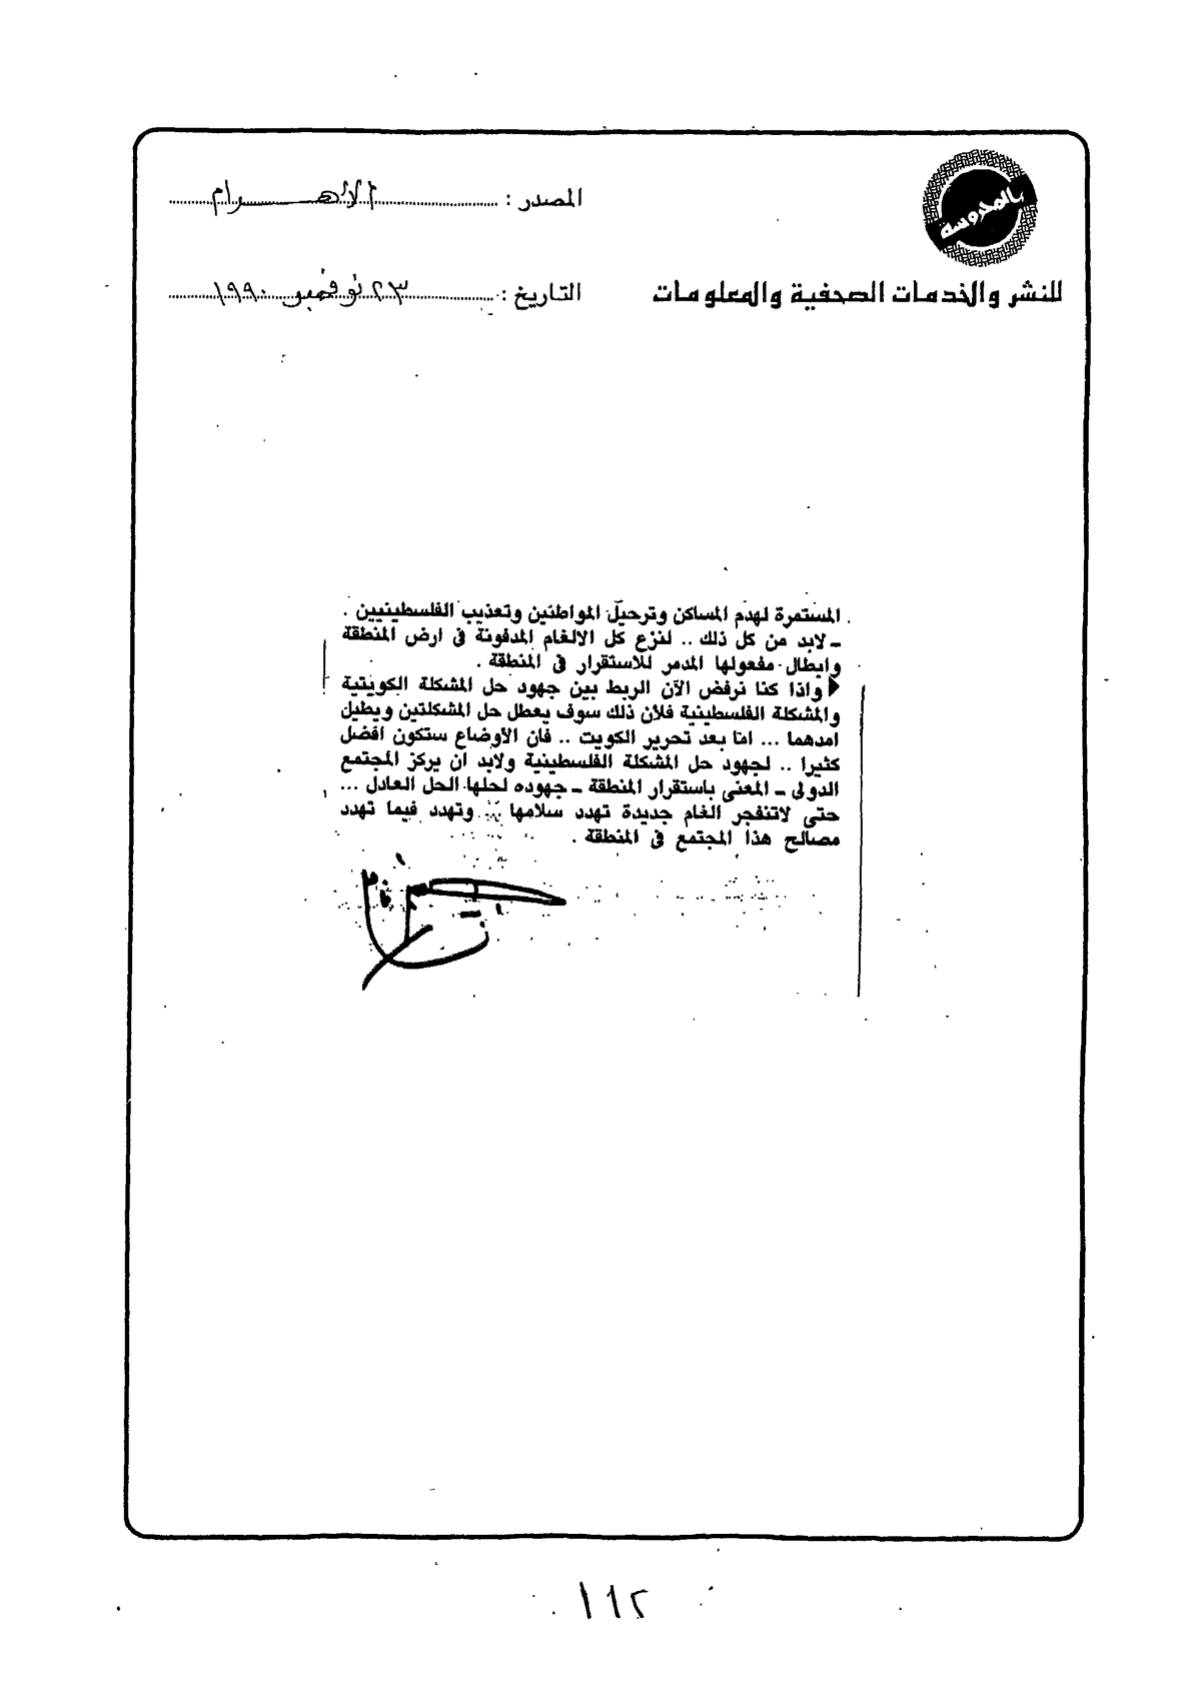 بالمحروسة
للنشر والخدمات الصحفية والمعلومات
المصدر : الأهرام
التاريخ : ٢٣ نوفمبر ١٩٩٠
المستمرة لهدم المساكن وترحيل المواطنين وتعذيب الفلسطينيين .
ــ لابد من كل ذلك .. لنزع كل الالغام المدفونة فى ارض المنطقة
وابطال مفعولها المدمر للاستقرار فى المنطقة .
◀ واذا كنا نرفض الآن الربط بين جهود حل المشكلة الكويتية
والمشكلة الفلسطينية فلأن ذلك سوف يعطل حل المشكلتين ويطيل
امدهما ... اما بعد تحرير الكويت .. فان الأوضاع ستكون افضل
كثيرا .. لجهود حل المشكلة الفلسطينية ولابد ان يركز المجتمع
الدولى ــ المعنى باستقرار المنطقة ــ جهوده لحلها الحل العادل ...
حتى لاتنفجر الغام جديدة تهدد سلامها .. وتهدد فيما تهدد
مصالح هذا المجتمع فى المنطقة .
١١٢